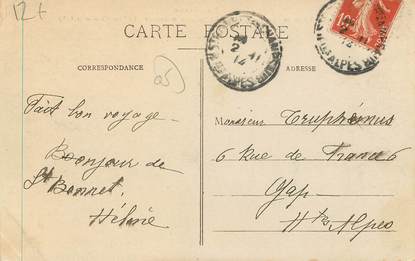 12 f
CARTE POSTALE
CORRESPONDANCE
ADRESSE
05
Fait bon voyage.
Bonjour de
St Bonnet.
Hélène
Monsieur Truphémus
6 Rue de France 6
Gap
Htes Alpes